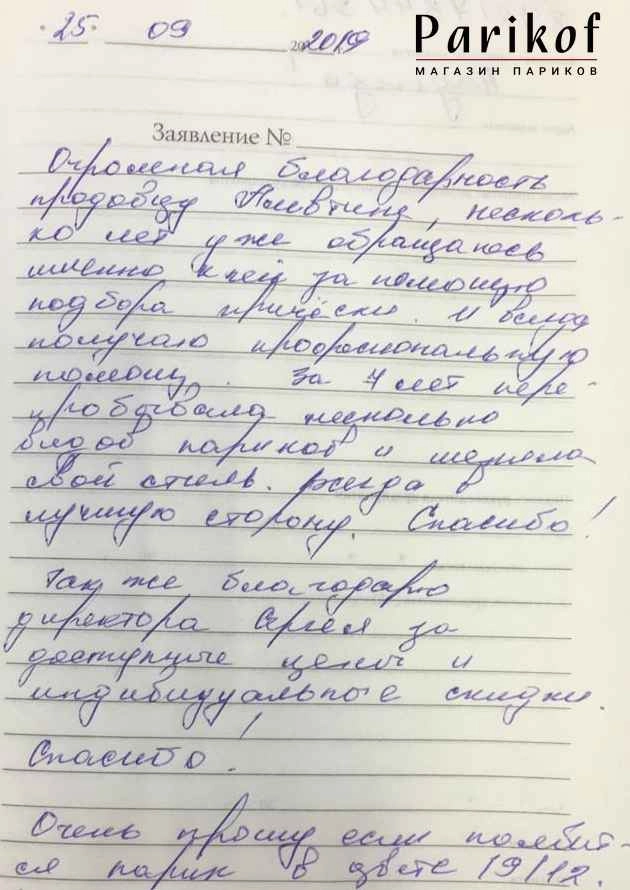 Parikof
МАГАЗИН ПАРИКОВ
25 09 2019
Заявление №
Огромная благодарность
продовцу Алевтине, несколь-
ко лет уже обращаюсь
именно к ней за помощью
подбора причёски. И всегда
получаю профессиональную
помощь. За 7 лет пере-
пробывала несколько
видов париков и меняла
свой стиль. Всегда в
лучшую сторону. Спасибо!
Так же благодарю
директора Сергея за
доступные цены и
индивидуальные скидки.
Спасибо!
Очень прошу если появит-
ся парик в цвете 19/12.